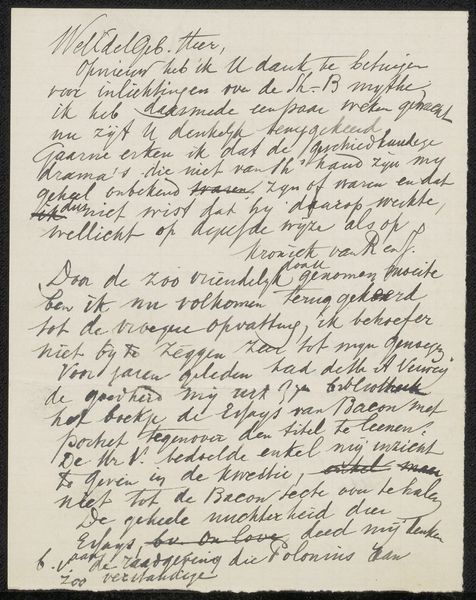 WelEdelGeb. Heer,
Opnieuw heb ik U dank te betuigen
voor inlichtingen over de Sh-B mythe
ik heb daarmede een paar weken gewacht
nu zijt U denkelijk teruggekeerd
Gaarne erken ik dat de geschiedkundige
drama's die niet van Sh' hand zyn my
geheel onbekend waren zyn of waren en dat
ik dus niet wist dat hy daarop werkte,
wellicht op dezelfde wyze als op
kroniek van R en J.
Door de zoo vriendelyk door U genomen moeite
ben ik nu volkomen terug gekeerd
tot de vroegere opvatting, ik behoef
niet by te zeggen zeer tot myn genoegen
Voor jaren geleden had de Hr A Verwey
de goedheid my uit zyn bibliotheek
het boekje de Essays van Bacon met
portret tegenover den titel te leenen.
De Hr V. bedoelde enkel my inzicht
te geven in de kwestie,
niet tot de Bacon secte over te halen
De geheele nuchterheid dier
Essays bv. On love deed my denken
b.v. aan de raadgeving die Polonius aan
zoo verstandige